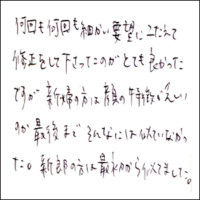 何回も何回も細かい要望にこたえて
修正をして下さったのがとても良かった
ですが新婦の方は顔の特徴がえしい
のか最後までそんなには似ていなかっ
た。新郎の方は最初から似てました。